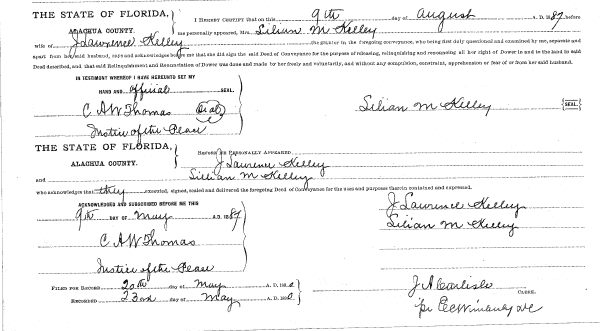 THE STATE OF FLORIDA,
ALACHUA COUNTY.
I HEREBY CERTIFY that on this 9th day of August A. D. 1889, before
me personally appeared, Mrs. Lilian M Kelley
wife of J Lawrence Kelley the grantor in the foregoing conveyance, who being first duly questioned and examined by me, separate and
apart from her said husband, says and acknowledges before me that she did sign the said Deed of Conveyance for the purpose of releasing, relinquishing and renouncing all her right of Dower in and to the land in said
Deed described, and that said Relinquishment and Renunciation of Dower was done and made by her freely and voluntarily, and without any compulsion, constraint, apprehension or fear of or from her said husband.
IN TESTIMONY WHEREOF I HAVE HEREUNTO SET MY
HAND AND official SEAL.
C A W Thomas Seal
Justice of the Peace
Lilian M Kelley SEAL
THE STATE OF FLORIDA,
ALACHUA COUNTY.
PERSONALLY APPEARED J Lawrence Kelley
and Lilian M Kelley
who acknowledges that they executed, signed, sealed and delivered the foregoing Deed of Conveyance for the uses and purposes therein contained and expressed.
ACKNOWLEDGED AND SUBSCRIBED BEFORE ME THIS
9th DAY OF May A.D. 1889
C A W Thomas
Justice of the Peace
J Lawrence Kelley
Lilian M Kelley
FILED FOR RECORD 20th day of May A. D.
RECORDED 23rd day of May A. D.
J A Carlisle
CLERK.